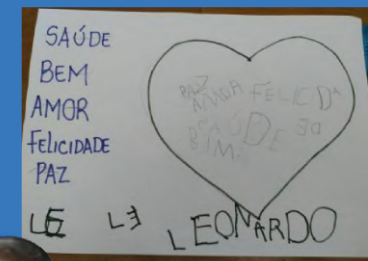 SAÚDE
BEM
AMOR
FELICIDADE
PAZ
PAZ
AMOR FELICIDA
DE
SAÚDE
BIM
LE LE LEONARDO